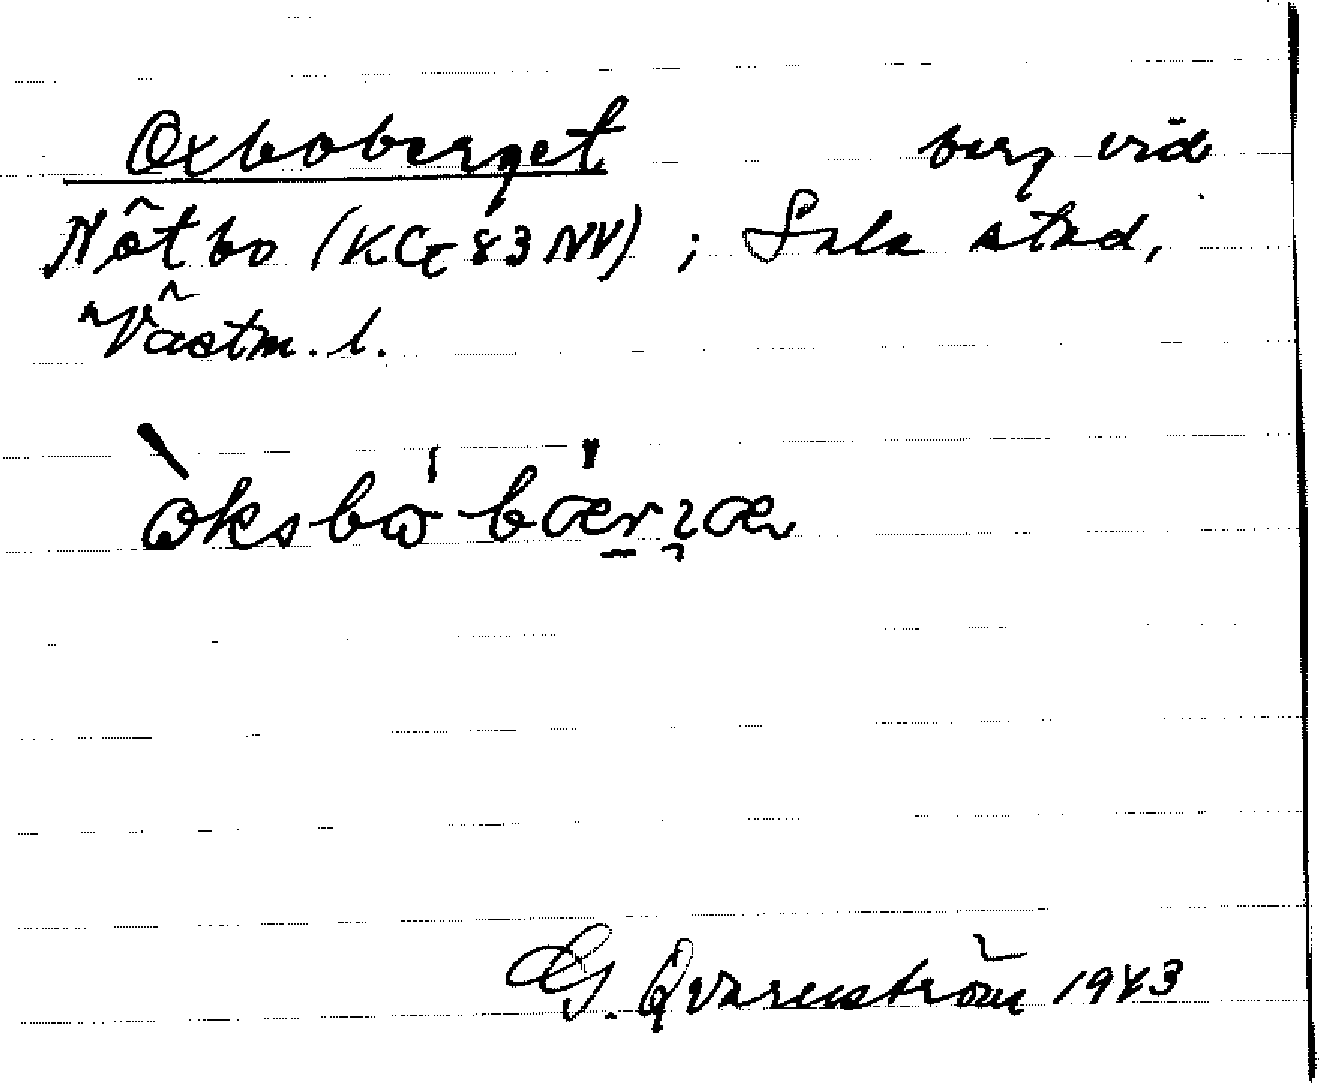 Oxboberget berg vid
Nötbo (KG 83 NV) ; Sala stad,
Västm. l.
òksbω' bærʒæ
G. Qvarnström 1943